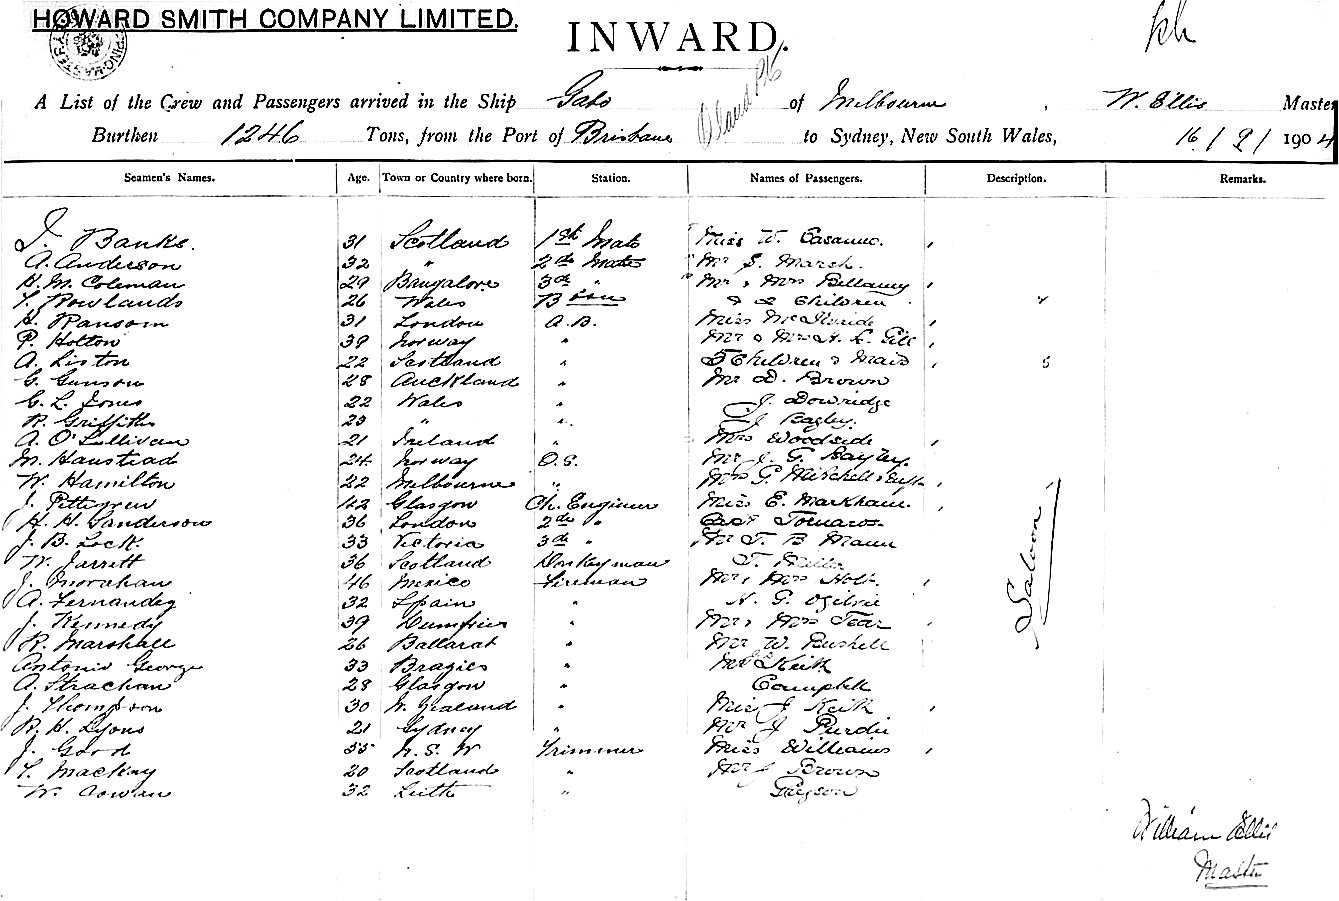 HOWARD SMITH COMPANY LIMITED.
INWARD.
A List of the Crew and Passengers arrived in the Ship Gabo of Melbourne, W. Ellis Master
Burthen 1246 Tons, from the Port of Brisbane to Sydney, New South Wales, 16/2/1904
Seamen's Names. Age. Town or Country where born. Station. Names of Passengers. Description. Remarks.
Banks. 31 Scotland 1st Mate Miss W.
A. Anderson 32 " 2nd Mate Mr S. Marsh.
H. M. Coleman 29 Bangalore 3rd " Mr & Mrs Bellamy
Rowlands 26 Wales & 2 Children
H. Ransom 31 London A.B. Miss McIlvride
P. Holton 39 Norway " Mr & Mrs Gill
A. Liston 22 Scotland " 5 Children & Maid 5
G. Gunson 28 Auckland " Mr D. Brown
G. L. Jones 22 Wales " J. Dowridge
R. Griffiths 23 " " J. Bagley.
A. O'Sullivan 21 Ireland " Mrs Woodside
M. Hanstead 24 Norway O.S. Mr J. G. Bayley.
W. Hamilton 22 Melbourne " Mrs G. Mitchell &
J. Pettigrew 42 Glasgow Ch. Engineer Miss E. Markham.
H. H. Sanderson 36 London 2nd "
J. B. Lock. 33 Victoria 3rd " Mr T. B. Mann
W. Jarrett 36 Scotland Donkeyman T. Miller
J. Monahan 46 Mexico Fireman Mr & Mrs Holt.
A. Fernandez 32 Spain " H. G. Ogilvie
J. Kennedy 39 Dumfries " Mr & Mrs Tear
R. Marshall 26 Ballarat " Mr W. Bushell
Antonio George 33 " Mr Keith
A. Strachan 28 Glasgow " Campbell
J. Thompson 30 N. Zealand " Miss J Keith
R. H. Lyons 21 Sydney " Mr J Purdie
J. Good N. S. W Trimmer Miss Williams
Mackay 20 Scotland " Mr J Brown
W. Cowan 32 Leith "
Saloon
William Ellis
Master